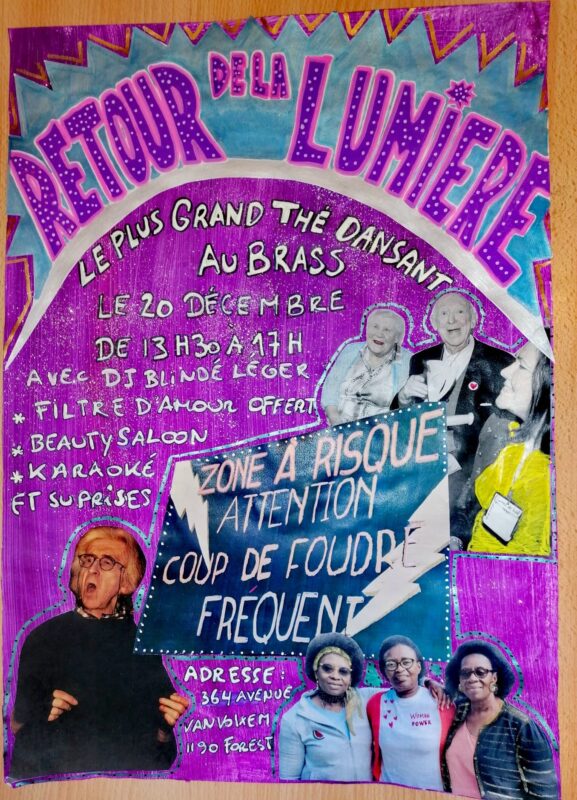 RETOUR DE LA LUMIERE
LE PLUS GRAND THÉ DANSANT
AU BRASS
LE 20 DÉCEMBRE
DE 13H30 À 17H
AVEC DJ BLINDÉ LÉGER
* FILTRE D'AMOUR OFFERT
* BEAUTY SALOON
* KARAOKÉ
ET SUPRISES
ZONE À RISQUE
ATTENTION
COUP DE FOUDRE
FRÉQUENT
ADRESSE :
364 AVENUE
VAN VOLXEM
1190 FOREST
WOMAN
POWER